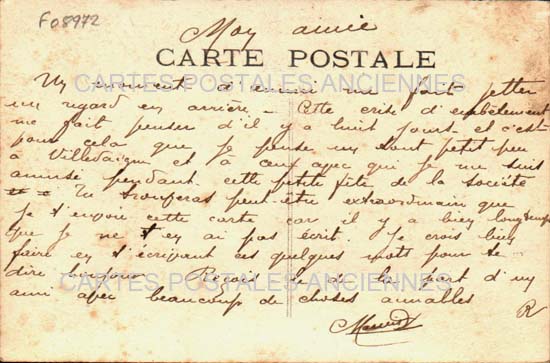 F08972
Mon amie
CARTE POSTALE
CARTES POSTALES ANCIENNES
Un moment d'ennui me fait jetter
un regard en arrière - Cette crise d'embêtement
me fait penser d'il y a huit jours - et c'est
pour cela que je pense un tout petit peu
à Villedaigne et à ceux avec qui je me suis
amusé pendant cette petite fête de la société
Tu trouveras peut-être extraordinaire que
je t'envoie cette carte car il y a bien longtemps
que je ne t'en ai pas écrit. Je crois bien
faire en t'écrivant ces quelques mots pour te
CARTES POSTALES ANCIENNES
dire bonjour Reçois le de la part d'un
ami avec beaucoup de choses
R